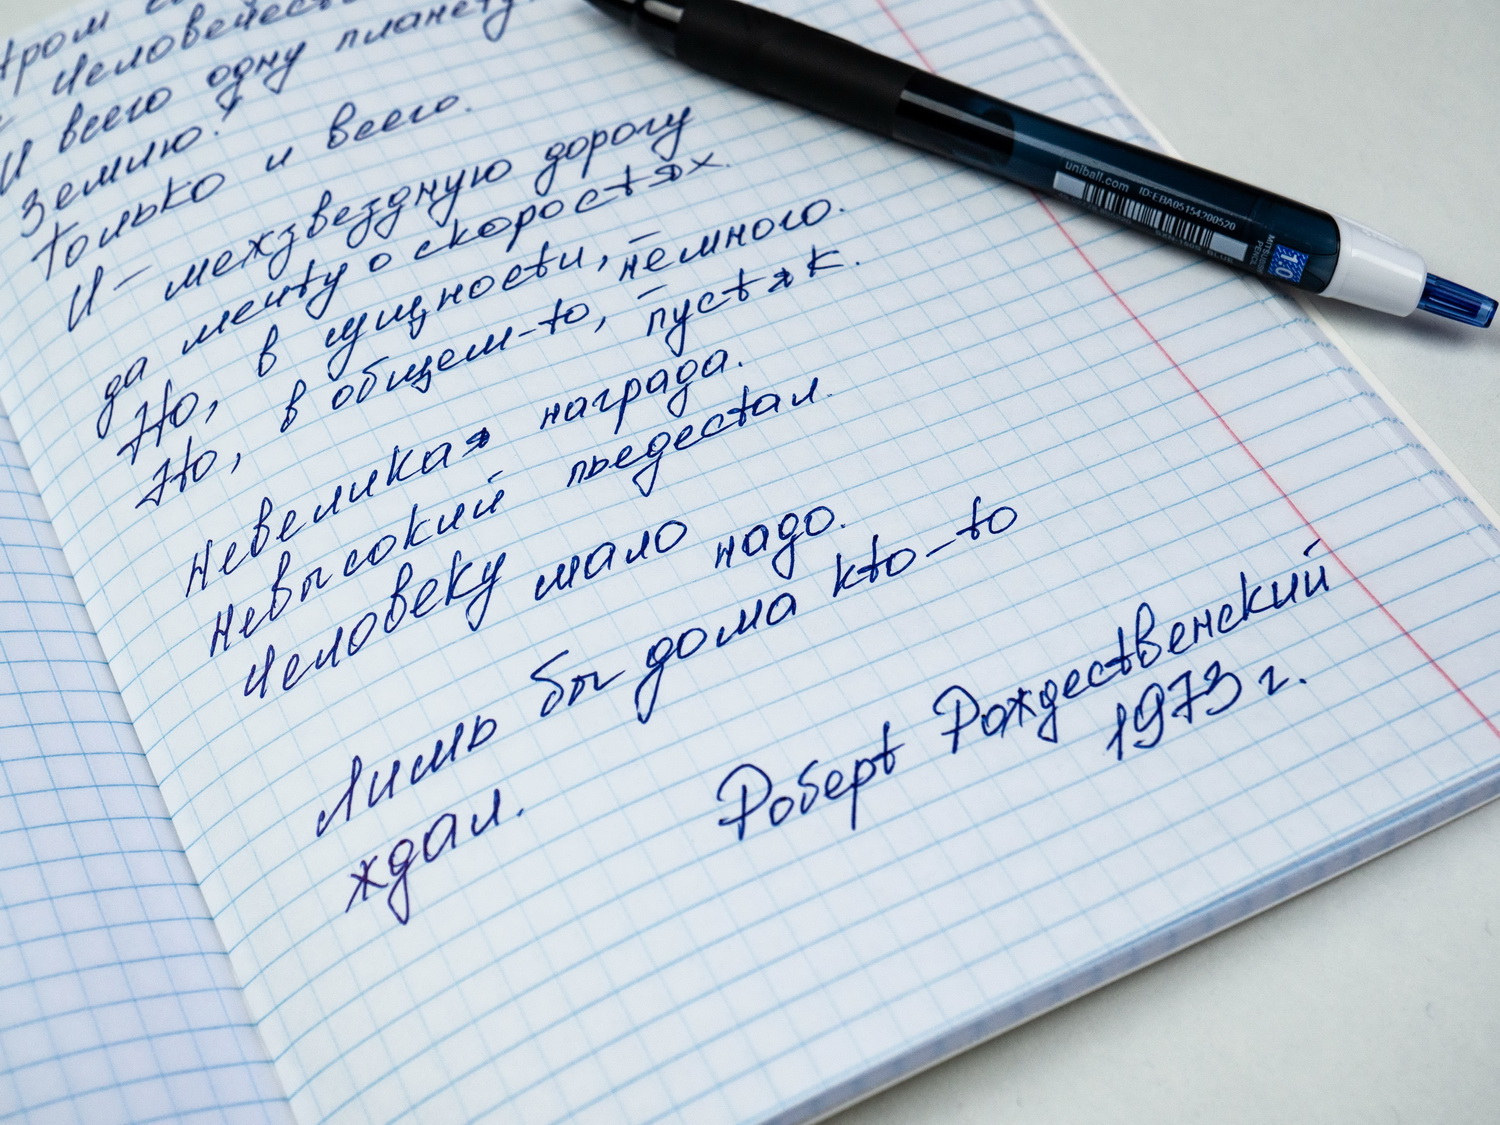 Человечест
И всего одну планету:
Землю!
Только и всего.
И – межзвездную дорогу
да мечту о скоростях.
Но, в сущности, – немного.
Но, в общем-то, – пустяк.
Невеликая награда.
Невысокий пьедестал.
Человеку мало надо.
Лишь бы дома кто-то
ждал.
Роберт Рождественский
1973 г.
uniball.com ID:EBA05154200520
1.0